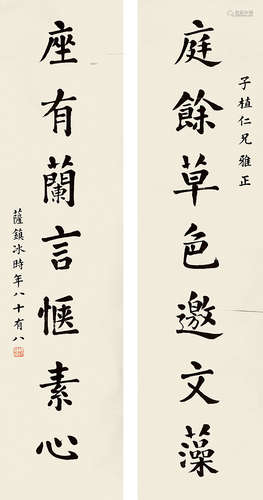 子植仁兄雅正
庭餘草色邀文藻
座有蘭言惬素心
薩鎮冰時年八十有八